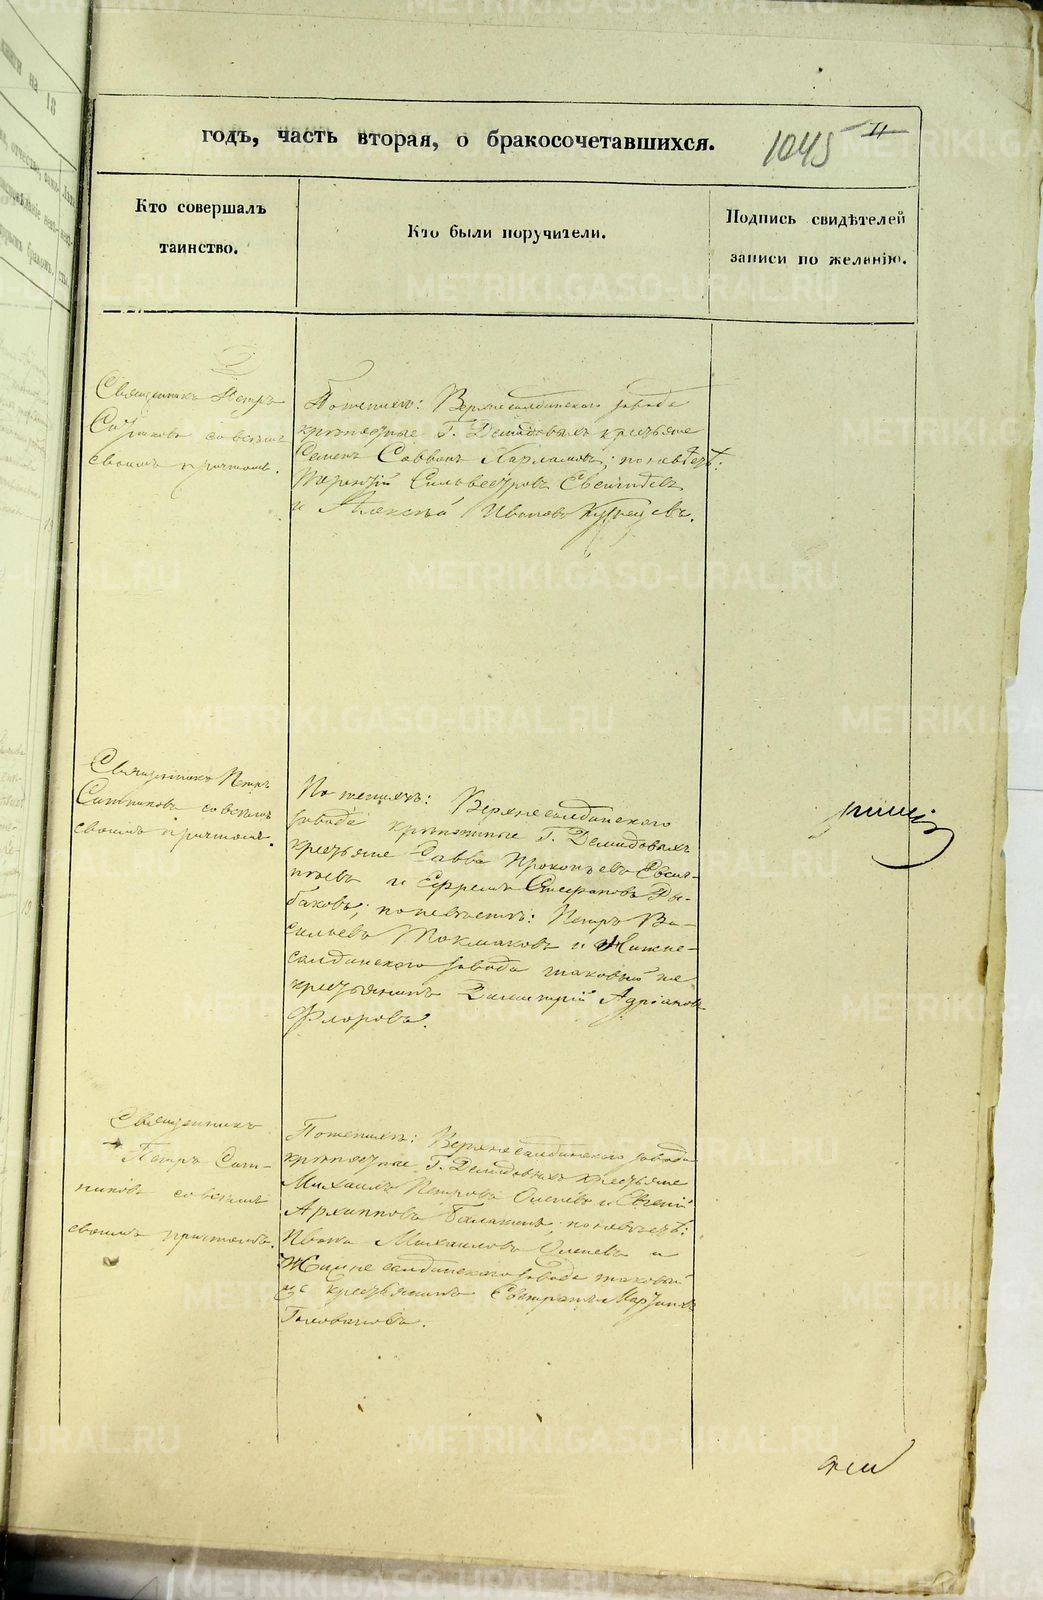 годъ, часть вторая, о бракосочетавшихся.
1045 11
Кто совершалъ
таинство.
Кто были поручители.
Подпись свидѣтелей
записи по желанію.
Священникъ Петръ
Ситниковъ со всѣмъ
своимъ причтомъ.
По женихѣ: Верхнесалдинскаго завода
крѣпостные Г. Демидовыхъ крестьяне
Семенъ Саввинъ Харламовъ; по невѣстѣ:
Терентій Сильвестровъ Евсигнѣевъ
и Алексѣй Ивановъ Кузнецовъ.
Священникъ Петръ
Ситниковъ со всѣмъ
своимъ причтомъ.
По женихѣ: Верхнесалдинскаго
завода крѣпостные Г. Демидовыхъ
крестьяне Савва Прокопьевъ Евсиг-
нѣевъ и Ефремъ Стефановъ Ры-
баковъ; по невѣстѣ: Петръ Ва-
сильевъ Токмаковъ и Нижне-
салдинскаго завода таковый же
крестьянинъ Димитрій Адріановъ
Флоровъ.
Священникъ
Петръ Сит-
никовъ со всѣмъ
своимъ причтомъ.
По женихѣ: Верхнесалдинскаго завода
крѣпостные Г. Демидовыхъ крестьяне
Михаилъ Петровъ Оленевъ и Евгений
Архипповъ Балакинъ; по невѣстѣ:
Иванъ Михаиловъ Оленевъ и
Нижнесалдинскаго завода таковый
же крестьянинъ Мартиновъ
METRIKI.GASO-URAL.RU